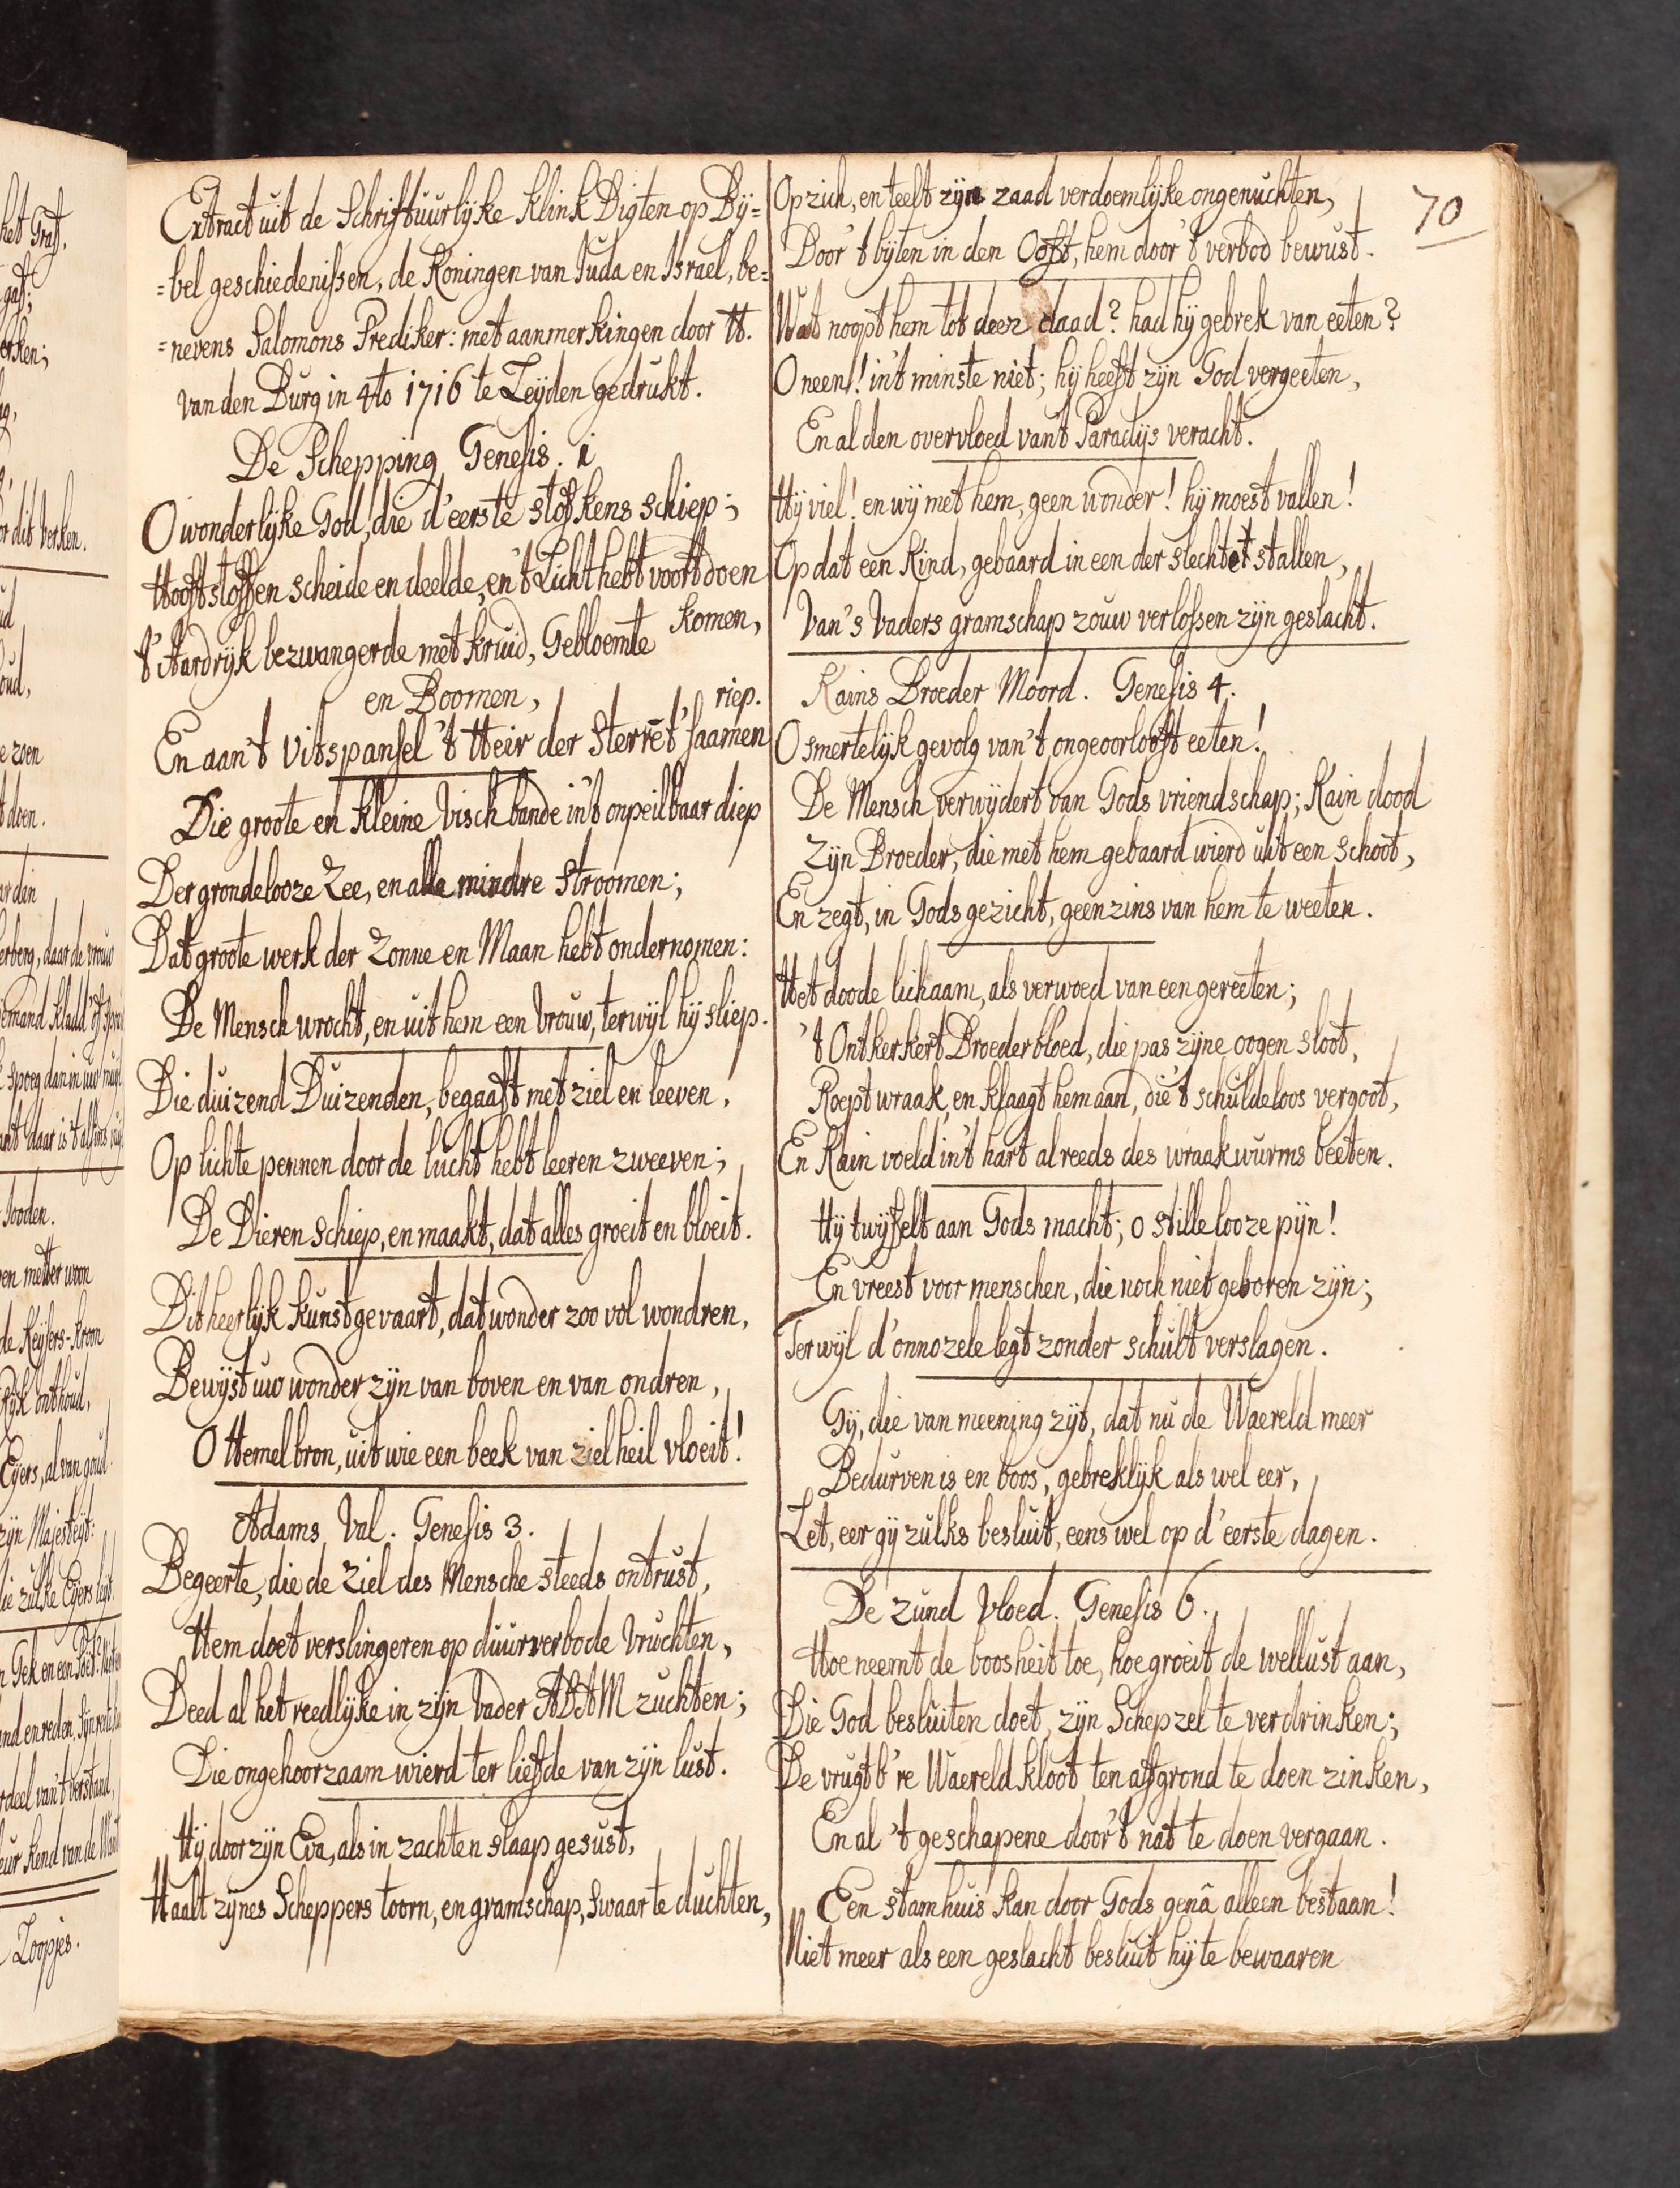 Extract uit de Schriftuurlyke Klink Digten op Bÿ=
=bel geschiedenissen, de Koningen van Juda en Israel, be=
=nevens Salomons Prediker: met aanmerkingen door H.
van den Burg in 4to 1716 te Leyden gedrukt.
De Schepping Genesis. 1
O wonderlyke God, die d'eerste stofkens schiep;
Hooftstoffen scheide en deelde, en 't Licht hebt voort doen
komen,
't Aardryk bezwangerde met kruid, Gebloemte
en Boomen,
riep.
En aan 't Vitspansel 't Heir der Sterret' saamen
Die groote en kleine Visch bande in 't onpeilbaar diep
Der grondelooze Zee, en alle mindre Stroomen;
Dat groote werk der Zonne en Maan hebt ondernomen:
De Mensch wrocht, en uit hem een Vrouw, terwyl hy sliep.
Die duizend Duizenden, begaaft met ziel en leeven,
Op lichte pennen door de lucht hebt leeren zweeven;
De Dieren schiep, en maakt, dat alles groeit en bloeit.
Dit heerlyk kunstgevaart, dat wonder zoo vol wondren,
Bewyst uw wonder zyn van boven en van ondren,
O Hemel bron, uit wie een beek van ziel heil vloeit!
Adams Val. Genesis 3.
Begeerte, die de ziel des Mensche steeds ontrust,
Hem doet verslingeren op duurverbode Vruchten,
Deed al het reedlyke in zyn Vader ADAM zuchten;
Die ongehoorzaam wierd ter liefde van zyn lust.
Hy door zyn Eva, als in zachten slaap gesust,
Haalt zynes Scheppers toorn, en gramschap, swaar te duchten,
70
Op zich, en teelt zyn zaad verdoemlyke ongenuchten,
Door 't byten in den Ooft, hem door 't verbod bewust.
Wat noopt hem tot deez daad? had hy gebrek van eeten?
O neen! in't minste niet; hy heeft zyn God vergeeten,
En al den overvloed van't Paradys veracht.
Hy viel! en wy met hem, geen wonder! hy moest vallen!
Op dat een Kind, gebaard in een der slechtet stallen,
Van 's Vaders gramschap zouw verlossen zyn geslacht.
Kains Broeder Moord. Genesis 4.
O smertelyk gevolg van 't ongeoorlooft eeten!
De Mensch verwydert van Gods vriendschap; Kain dood
Zyn Broeder, die met hem gebaard wierd uit een schoot,
En zegt, in Gods gezicht, geenzins van hem te weeten.
Het doode lichaam, als verwoed van een gereeten;
't Ontkerkert Broeder bloed, die pas zyne oogen sloot,
Roept wraak, en klaagt hem aan, die 't schuldeloos vergoot,
En Kain voeld in't hart alreeds des wraakwurms beeten.
Hy twyffelt aan Gods macht; o stillelooze pyn!
En vreest voor menschen, die noch niet geboren zyn;
Terwyl d'onnozele legt zonder schult verslagen.
Gy, die van meening zyt, dat nu de Waereld meer
Bedurven is en boos, gebreklyk als wel eer,
Let, eer gy zulks besluit, eens wel op d'eerste dagen.
De zund Vloed. Genesis 6.
Hoe neemt de boosheit toe, hoe groeit de wellust aan,
Die God besluiten doet, zyn Schepzel te verdrinken;
De vrugtb're Waereld kloot ten affgrond te doen zinken,
En al 't geschapene door't nat te doen vergaan.
Een stamhuis kan door Gods genâ alleen bestaan!
Niet meer als een geslacht besluit hy te bewaaren